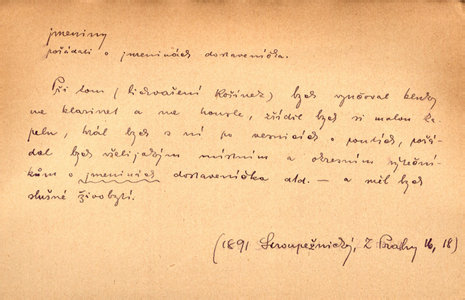 jmeniny
pořádati o jmeninách dostaveníčka.
Při tom (lickvaření kořínek) bych vyučoval kluky
na klarinet a na housle, zřídil bych si malou ka-
pelu, hrál bych s ní po vesnicích o poutích, pořá-
dal bych všelijakým místním a okresním výteční-
kům o jmeninách dostaveníčka atd. — a měl bych
slušné živobytí.
(1891 Stroupežnický, Z Prahy 16, 18)